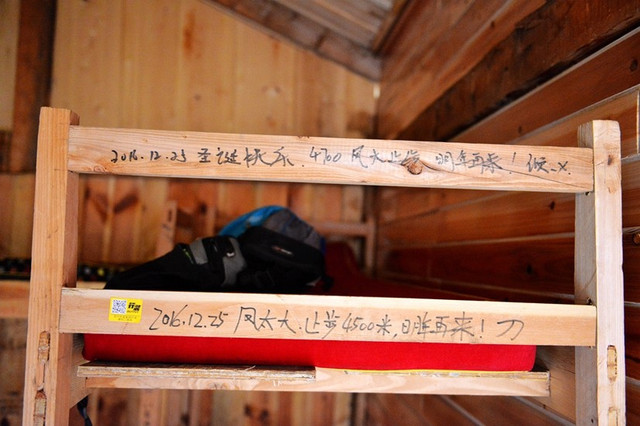 2016.12.25 圣诞快乐.4700 风大止步.明年再来!
2016.12.25 风太大,止步4500米,日后再来!刀